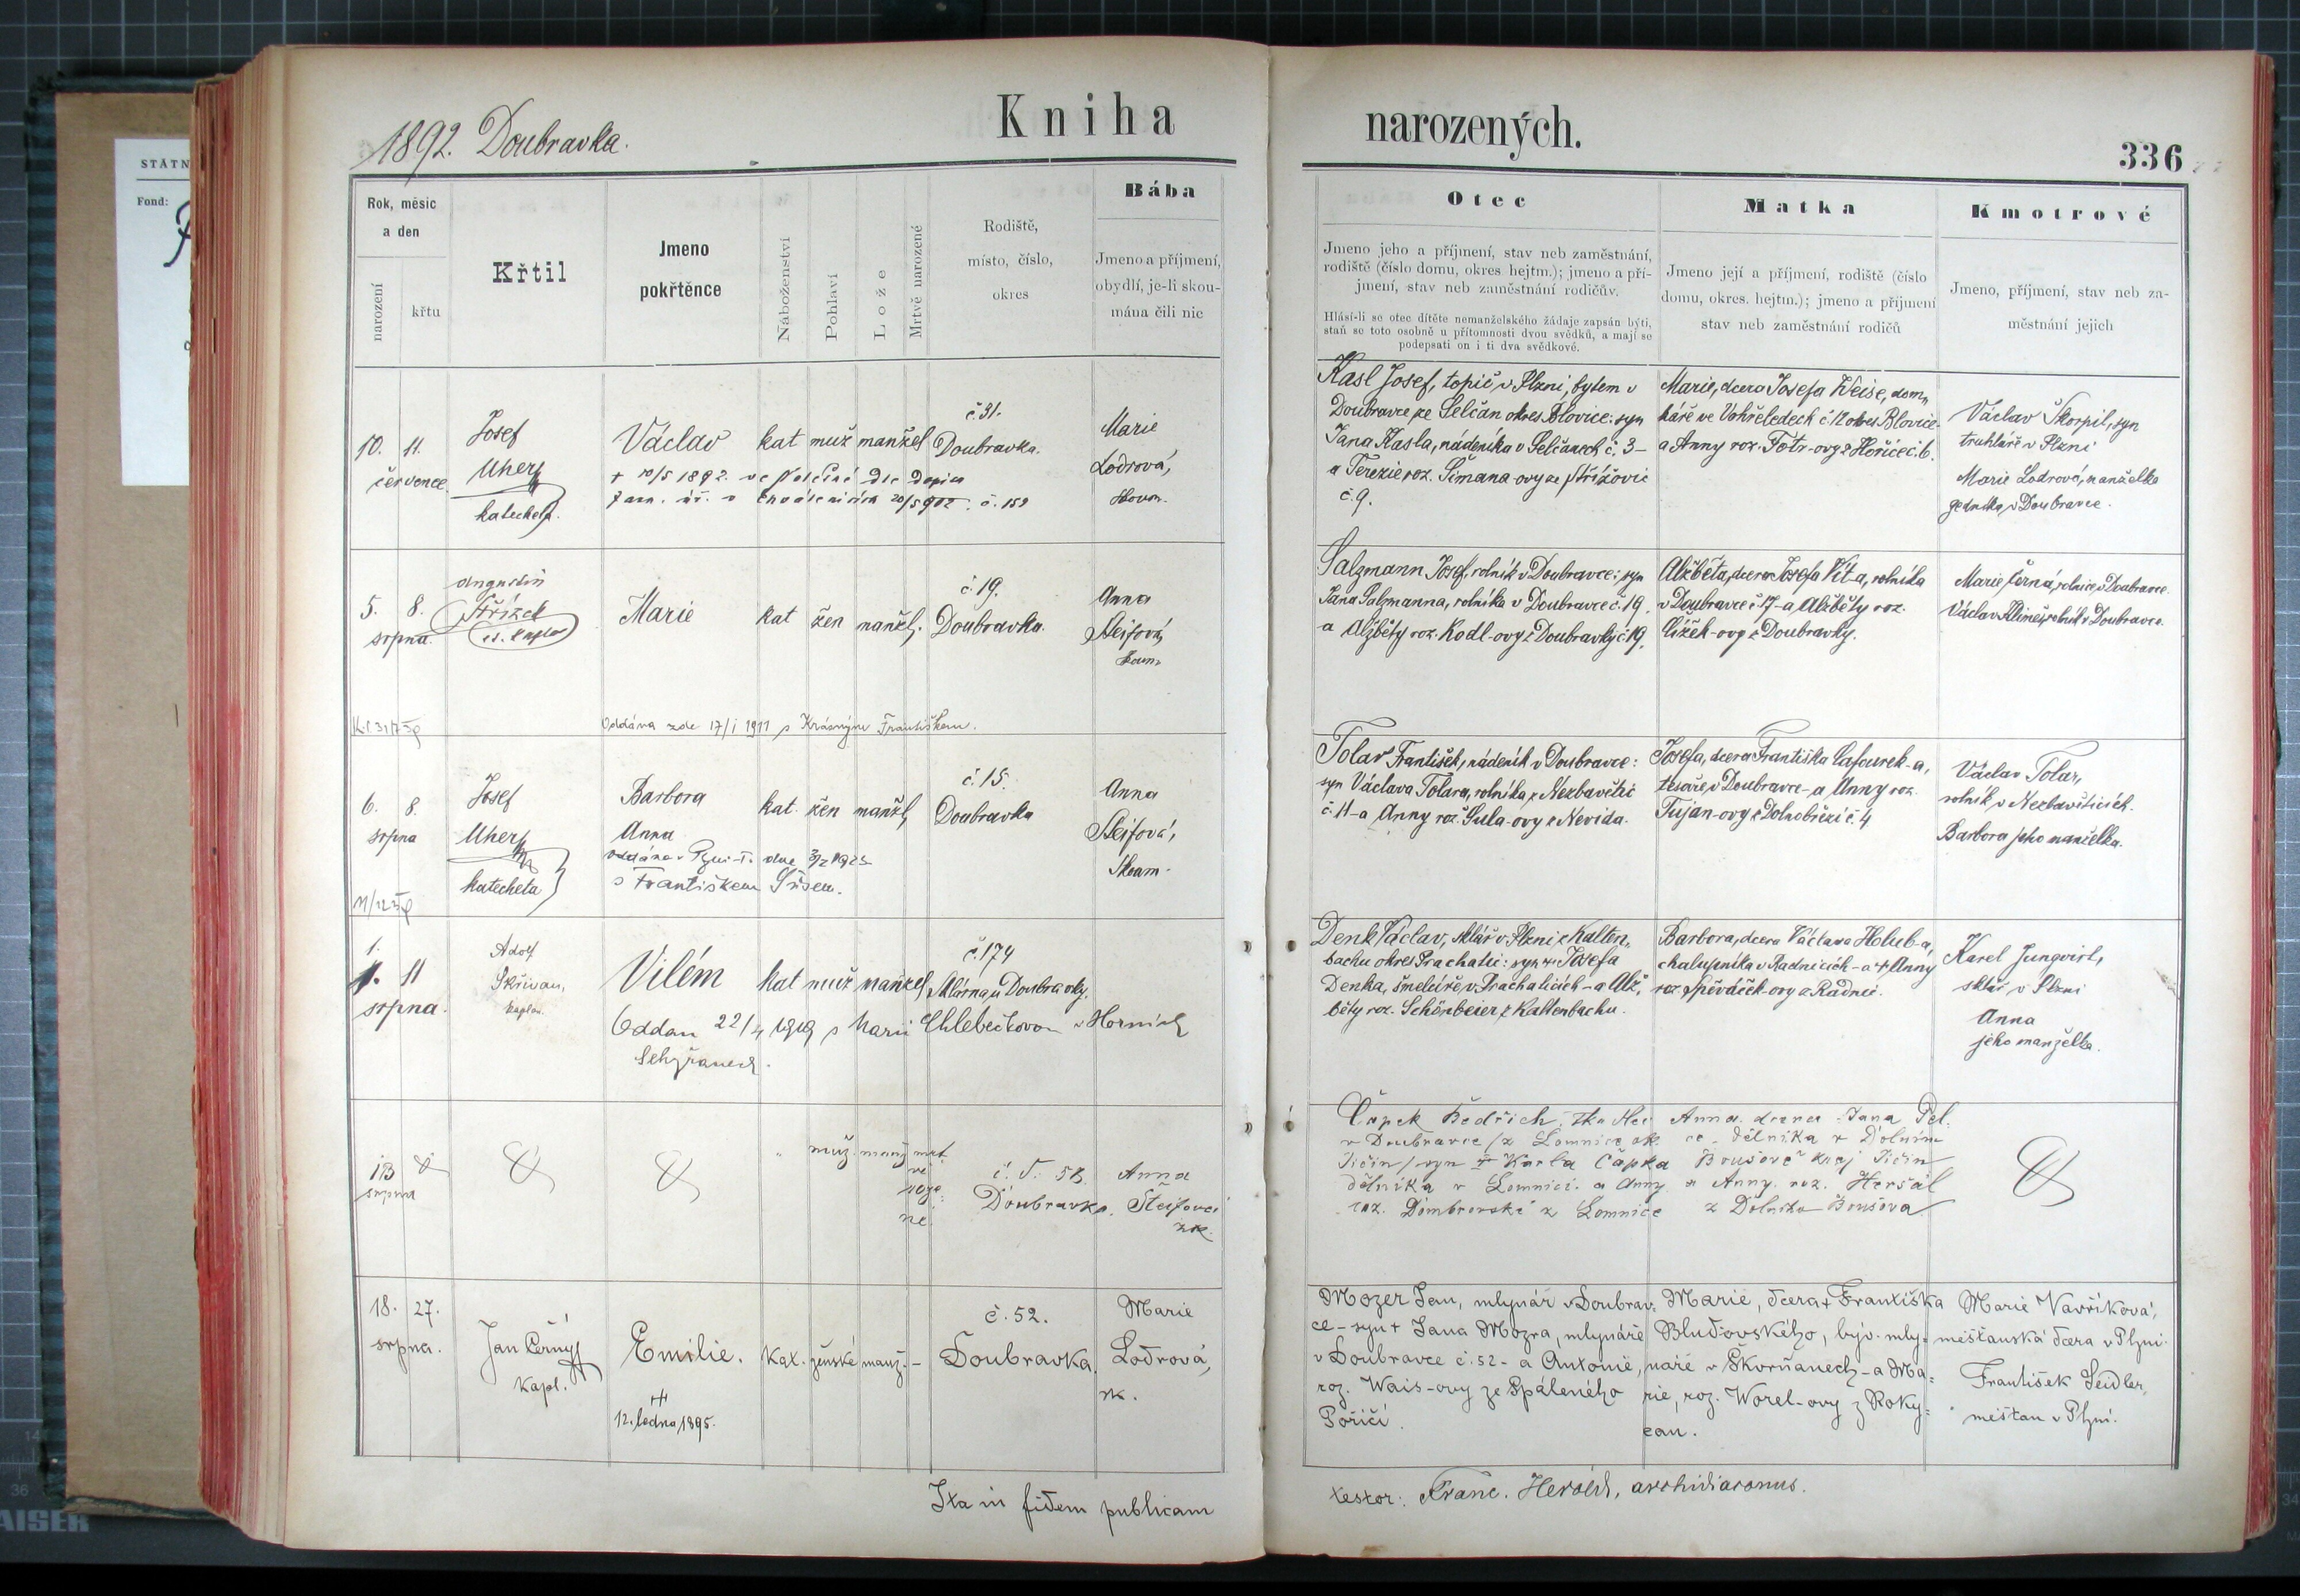 STÁTN
Fond:
1892. Doubravka.
Kniha
narozených.
336
Rok, měsíc
a den
narození
křtu
Křtil
Jmeno
pokřtěnce
Náboženství
Pohlaví
Lože
Mrtvě narozené
Rodiště,
místo, číslo,
okres
Bába
Jmeno a příjmení,
obydlí, je-li skou-
mána čili nic
Otec
Jmeno jeho a příjmení, stav neb zaměstnání,
rodiště (číslo domu, okres hejtm.); jmeno a pří-
jmení, stav neb zaměstnání rodičův.
Hlásí-li se otec dítěte nemanželského žádaje zapsán býti,
staň se toto osobně u přítomnosti dvou svědků, a mají se
podepsati on i ti dva svědkové.
Matka
Jmeno její a příjmení, rodiště (číslo
domu, okres. hejtm.); jmeno a příjmení
stav neb zaměstnání rodičů
Kmotrové
Jmeno, příjmení, stav neb za-
městnání jejich
10. 11.
července
Josef
Uher
katecheta.
Václav kat muž manžel
+ 10/5 1892.
20/5 902 č. 159
č 31.
Doubravka.
Marie
Lodrová,
Kasl Josef, topič v Plzni, bytem v
Doubravce ze Selčan okres Blovice: syn
Jana Kasla, nádeníka v Selčanech č. 3 –
a Terezie roz. Šimana-ovy ze Střížovic
č. 9.
Marie, dcera Josefa Weise, dom,
káře ve Vohřeledech č. 12 okres Blovice
a Anny roz. Fotr-ovy z Hořic č. 6.
Václav Škorpil, syn
truhláře v Plzni
Marie Lodrová, manželka
v Doubravce.
5. 8.
srpna
Augustin
Střízek
Marie kat žen manžel.
č 19.
Doubravka.
Anna
Steifová,
Salzmann Josef, rolník v Doubravce; syn
Jana Salzmanna, rolníka v Doubravce č. 19,
a Alžběty roz. Kodl-ovy z Doubravky č 19.
Alžběta, dcera Josefa Vít-a, rolníka
v Doubravce č 17 – a Alžběty roz.
Cížek-ovy z Doubravky.
Marie Černá, rolnice v Doubravce.
Václav Klimeš, rolník v Doubravce.
Oddána zde 17/I 1911 s Krásným Františkem.
6. 8.
srpna
Josef
Uher
katecheta
Barbora
Anna
kat. žen manžel,
s Františkem
č. 15.
Doubravka
Anna
Steifová,
Tolar František, nádeník v Doubravce:
syn Václava Tolara, rolníka z Nezbavětic
č. 11 – a Anny roz. Šula-ovy z Nevida.
Josefa, dcera Františka Cafourek-a,
tesaře v Doubravce – a Anny roz.
Tujan-ovy z Dolnobřezí č. 4
Václav Tolar,
rolník v Nezbavěticích.
Barbora jeho manželka.
1. 11
srpna
Adolf
Skřivan,
kaplan.
Vilém kat muž manžel
Oddán 22/4 1919 s Marií Chlebečkovou v Horních
č. 174
Sklárna u Doubravky.
Denk Václav, sklář v Plzni z Kalten,
bachu okres Prachatic: syn + Josefa
Denka, šmelcíře v Prachaticích – a Alž,
běty roz. Schönbeier z Kaltenbachu.
Barbora, dcera Václava Holub-a,
chalupníka v Radnicích – a + Anny
roz Spěváček-ovy z Radnic.
Karel Jungvirt,
sklář v Plzni
Anna
jeho manželka.
13
srpna
muž. manž. mrt
vě
roze
né
č. d. 58.
Doubravka.
Anna
Steifová
zk.
Čapek Bedřich, tkadlec
v Doubravce (z Lomnice ok
Jičín) syn + Karla Čapka
dělníka v Lomnici a Anny
roz. Dombrovské z Lomnice
Anna, dcera Jana Pel-
ce dělníka v Dolním
Bousově kraj Jičín
a Anny roz. Heršál
z Dolního Bousova
18. 27.
srpna.
Jan Černý
Kapl.
Emilie. Kat. ženské manž. –
12. ledna 1895.
č. 52.
Doubravka.
Marie
Lodrová,
zk.
Mozer Jan, mlynář v Doubrav-
ce – syn + Jana Mozra, mlynáře
v Doubravce č. 52 – a Antonie,
roz. Wais-ovy ze Spáleného
Poříčí.
Marie, dcera + Františka
Bluďovského, býv. mly-
náře v Škvrňanech – a Ma-
rie, roz. Worel-ovy z Roky-
can.
Marie Vavříková,
měšťanská dcera v Plzni.
František Seidler,
měšťan v Plzni.
Ita in fidem publicam
testor: Franc. Herold, archidiaconus.